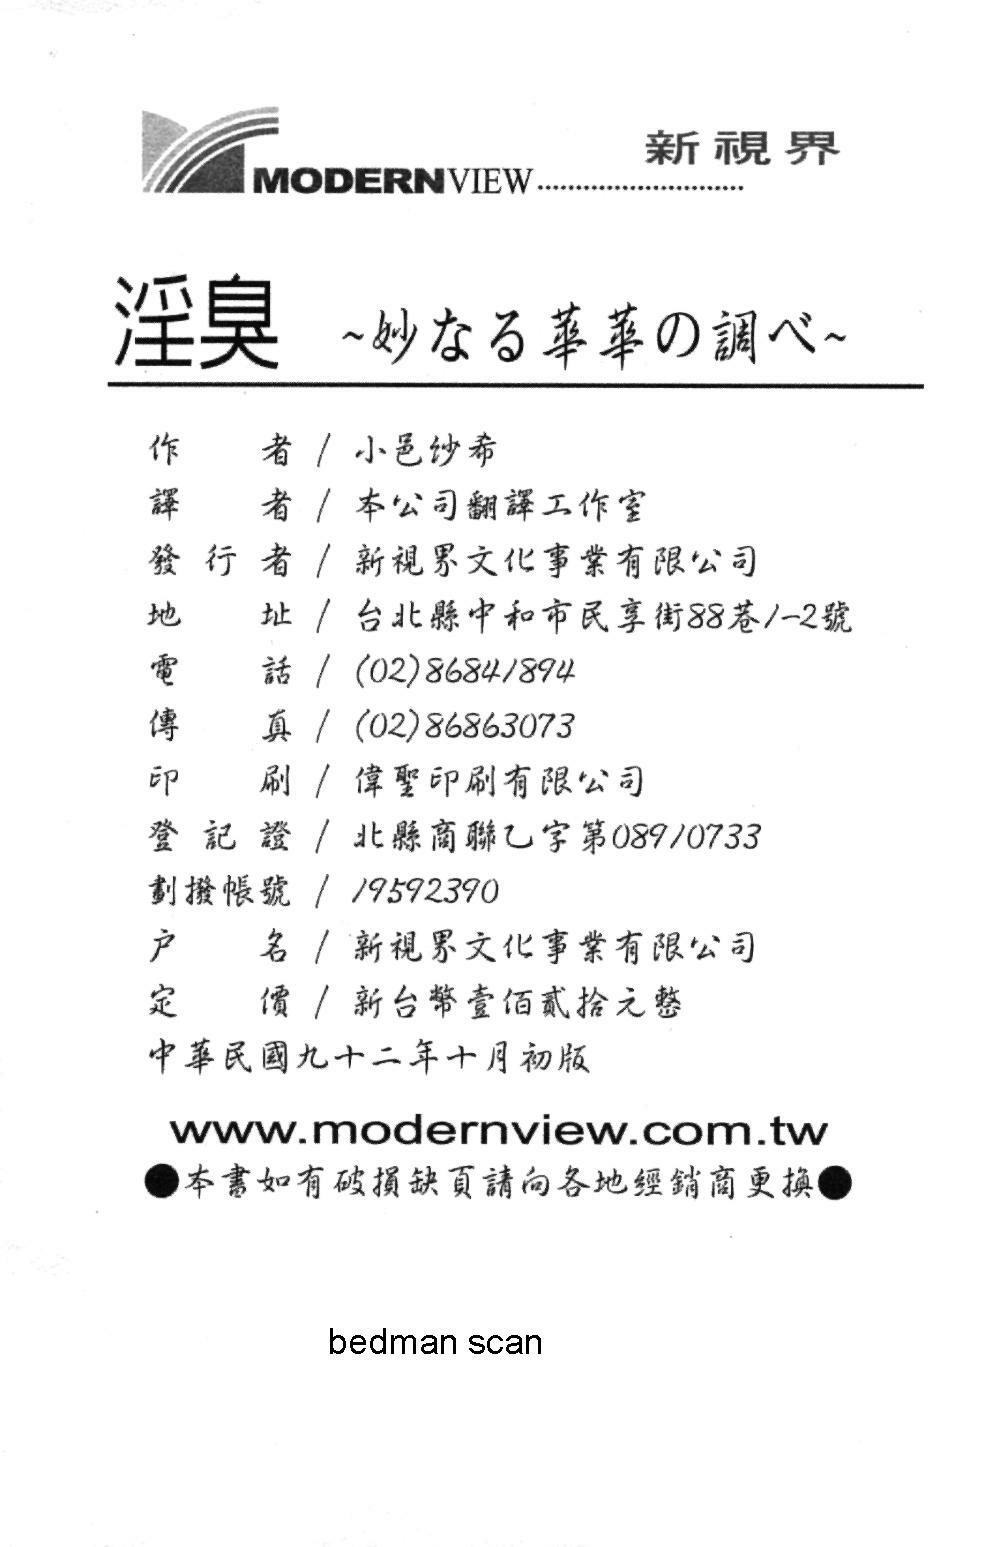 新視界
MODERNVIEW...........................
淫臭 ~妙なる華華の調べ~
作者/小邑紗希
譯者/本公司翻譯工作室
發行者/新視界文化事業有限公司
地址/台北縣中和市民享街88巷1-2號
電話/(02)86841894
傳真/(02)86863073
印刷/偉聖印刷有限公司
登記證/北縣商聯乙字第08910733
劃撥帳號/19592390
戶名/新視界文化事業有限公司
定價/新台幣壹佰貳拾元整
中華民國九十二年十月初版
www.modernview.com.tw
●本書如有破損缺頁請向各地經銷商更換●
bedman scan